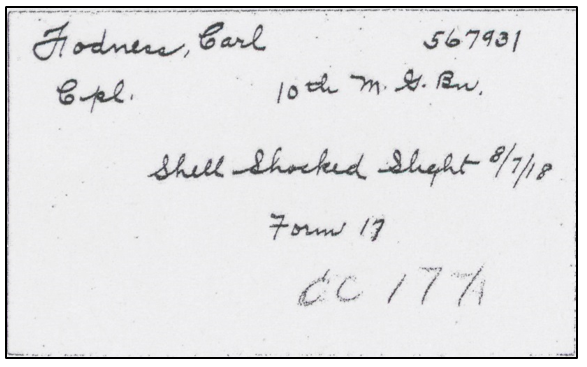 Fodness, Carl 567931
Cpl. 10th M. G. Bn.
Shell Shocked Slight 8/7/18
Form 17
CC 177A